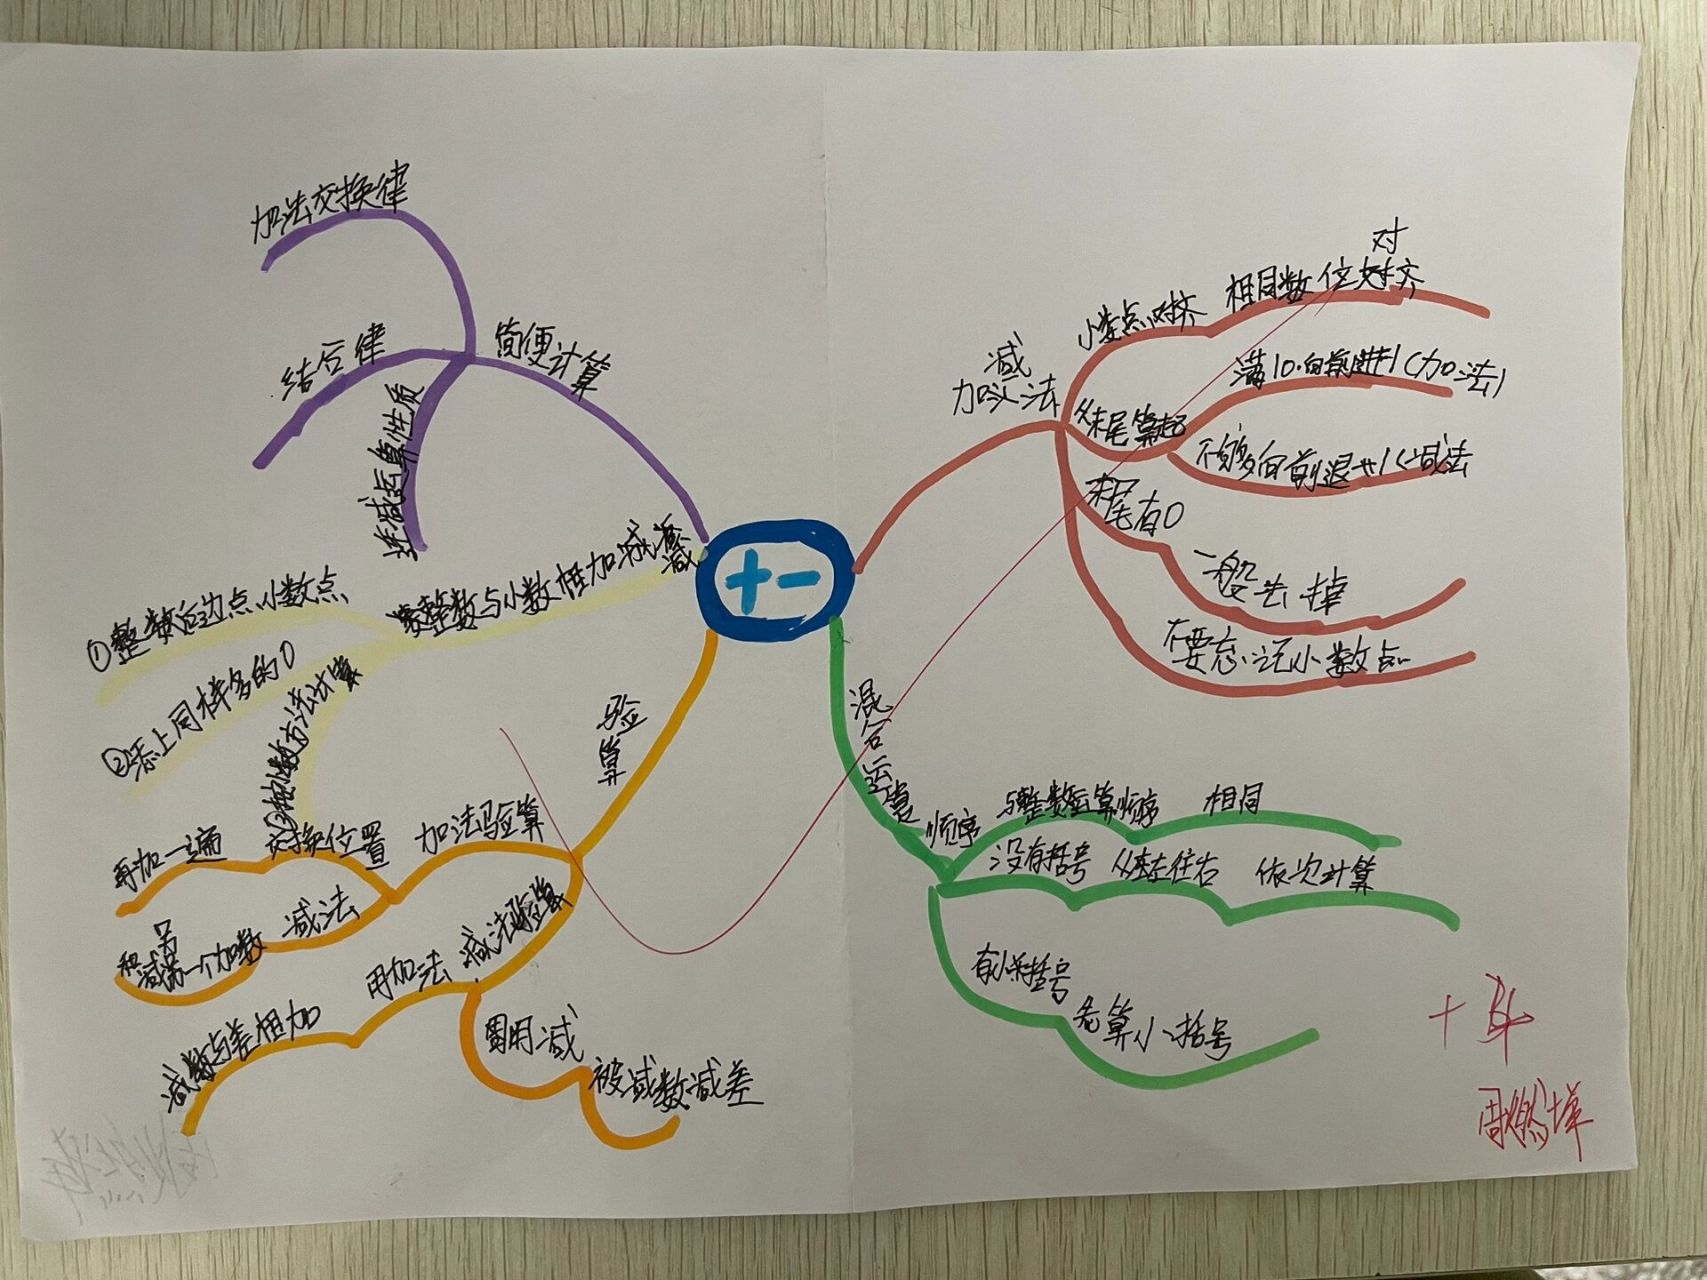 加法交换律
结合律
简便计算
连减运算性质
整数与小数相加减
①整数右边点小数点
②添上同样多的0
+-
加减法
小数点对齐
相同数位对齐
对
从末尾算起
满10向前进1(加法)
不够向前退1(减法
末尾有0
一般去掉
不要忘记小数点
验算
加法验算
交换位置
再加一遍
减法
和减另一个加数
减法验算
用加法
减数与差相加
用减
被减数减差
混合运算
顺序
与整数运算顺序
相同
没有括号
从左往右
依次计算
有小括号
先算小括号